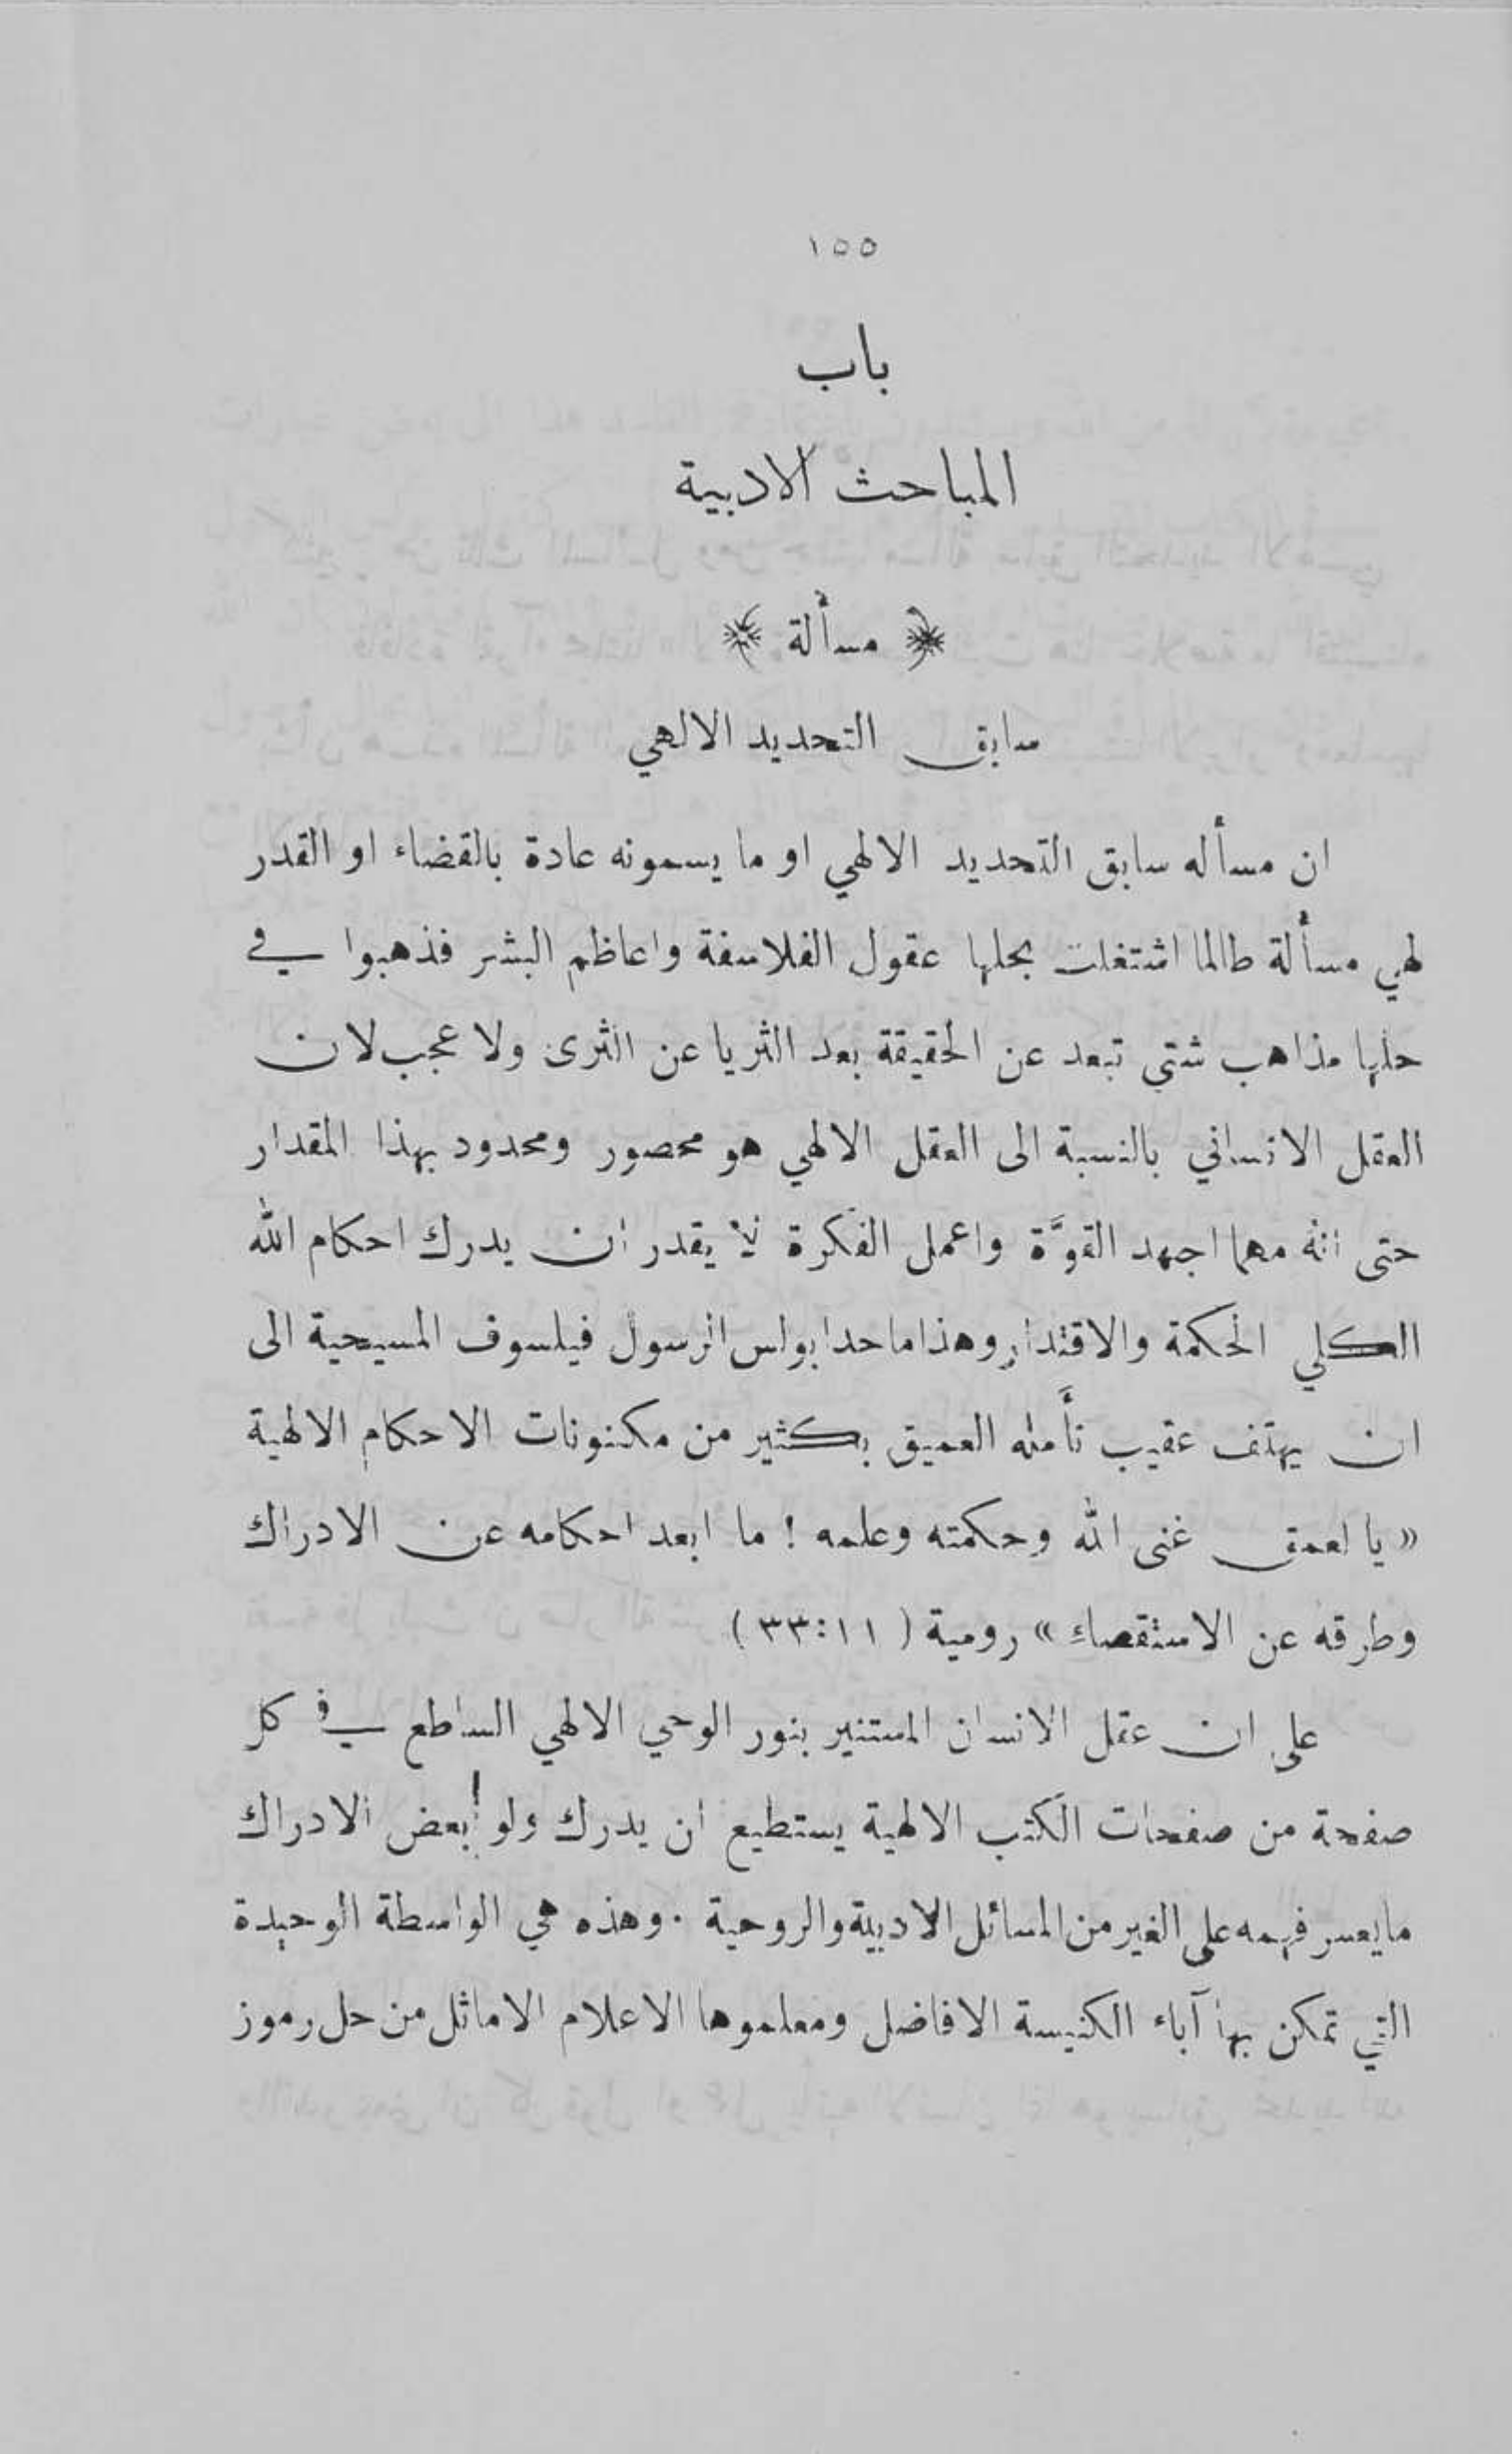 ١٥٥
باب
المباحث الادبية
﴿ مسألة ﴾
سابق التحديد الالهي
ان مسأله سابق التحديد الالهي او ما يسمونه عادة بالقضاء او القدر
لهي مسألة طالما اشتغلت بحلها عقول الفلاسفة واعاظم البشر فذهبوا في
حلها مذاهب شتى تبعد عن الحقيقة بعد الثريا عن الثرى ولا عجب لان
العقل الانساني بالنسبة الى العقل الالهي هو محصور ومحدود بهذا المقدار
حتى انه مهما اجهد القوَّة واعمل الفكرة لا يقدر ان يدرك احكام الله
الكلي الحكمة والاقتدار وهذا ما حدا بولس الرسول فيلسوف المسيحية الى
ان يهتف عقيب تأَمله العميق بكثير من مكنونات الاحكام الالهية
« يا لعمق غنى الله وحكمته وعلمه ! ما ابعد احكامه عن الادراك
وطرقه عن الاستقصاءِ » رومية ( ١١:٣٣ )
على ان عقل الانسان المستنير بنور الوحي الالهي الساطع في كل
صفحة من صفحات الكتب الالهية يستطيع ان يدرك ولو بعض الادراك
ما يعسر فهمه على الغير من المسائل الادبية والروحية . وهذه هي الواسطة الوحيدة
التي تمكن بها آباء الكنيسة الافاضل ومعلموها الاعلام الاماثل من حل رموز